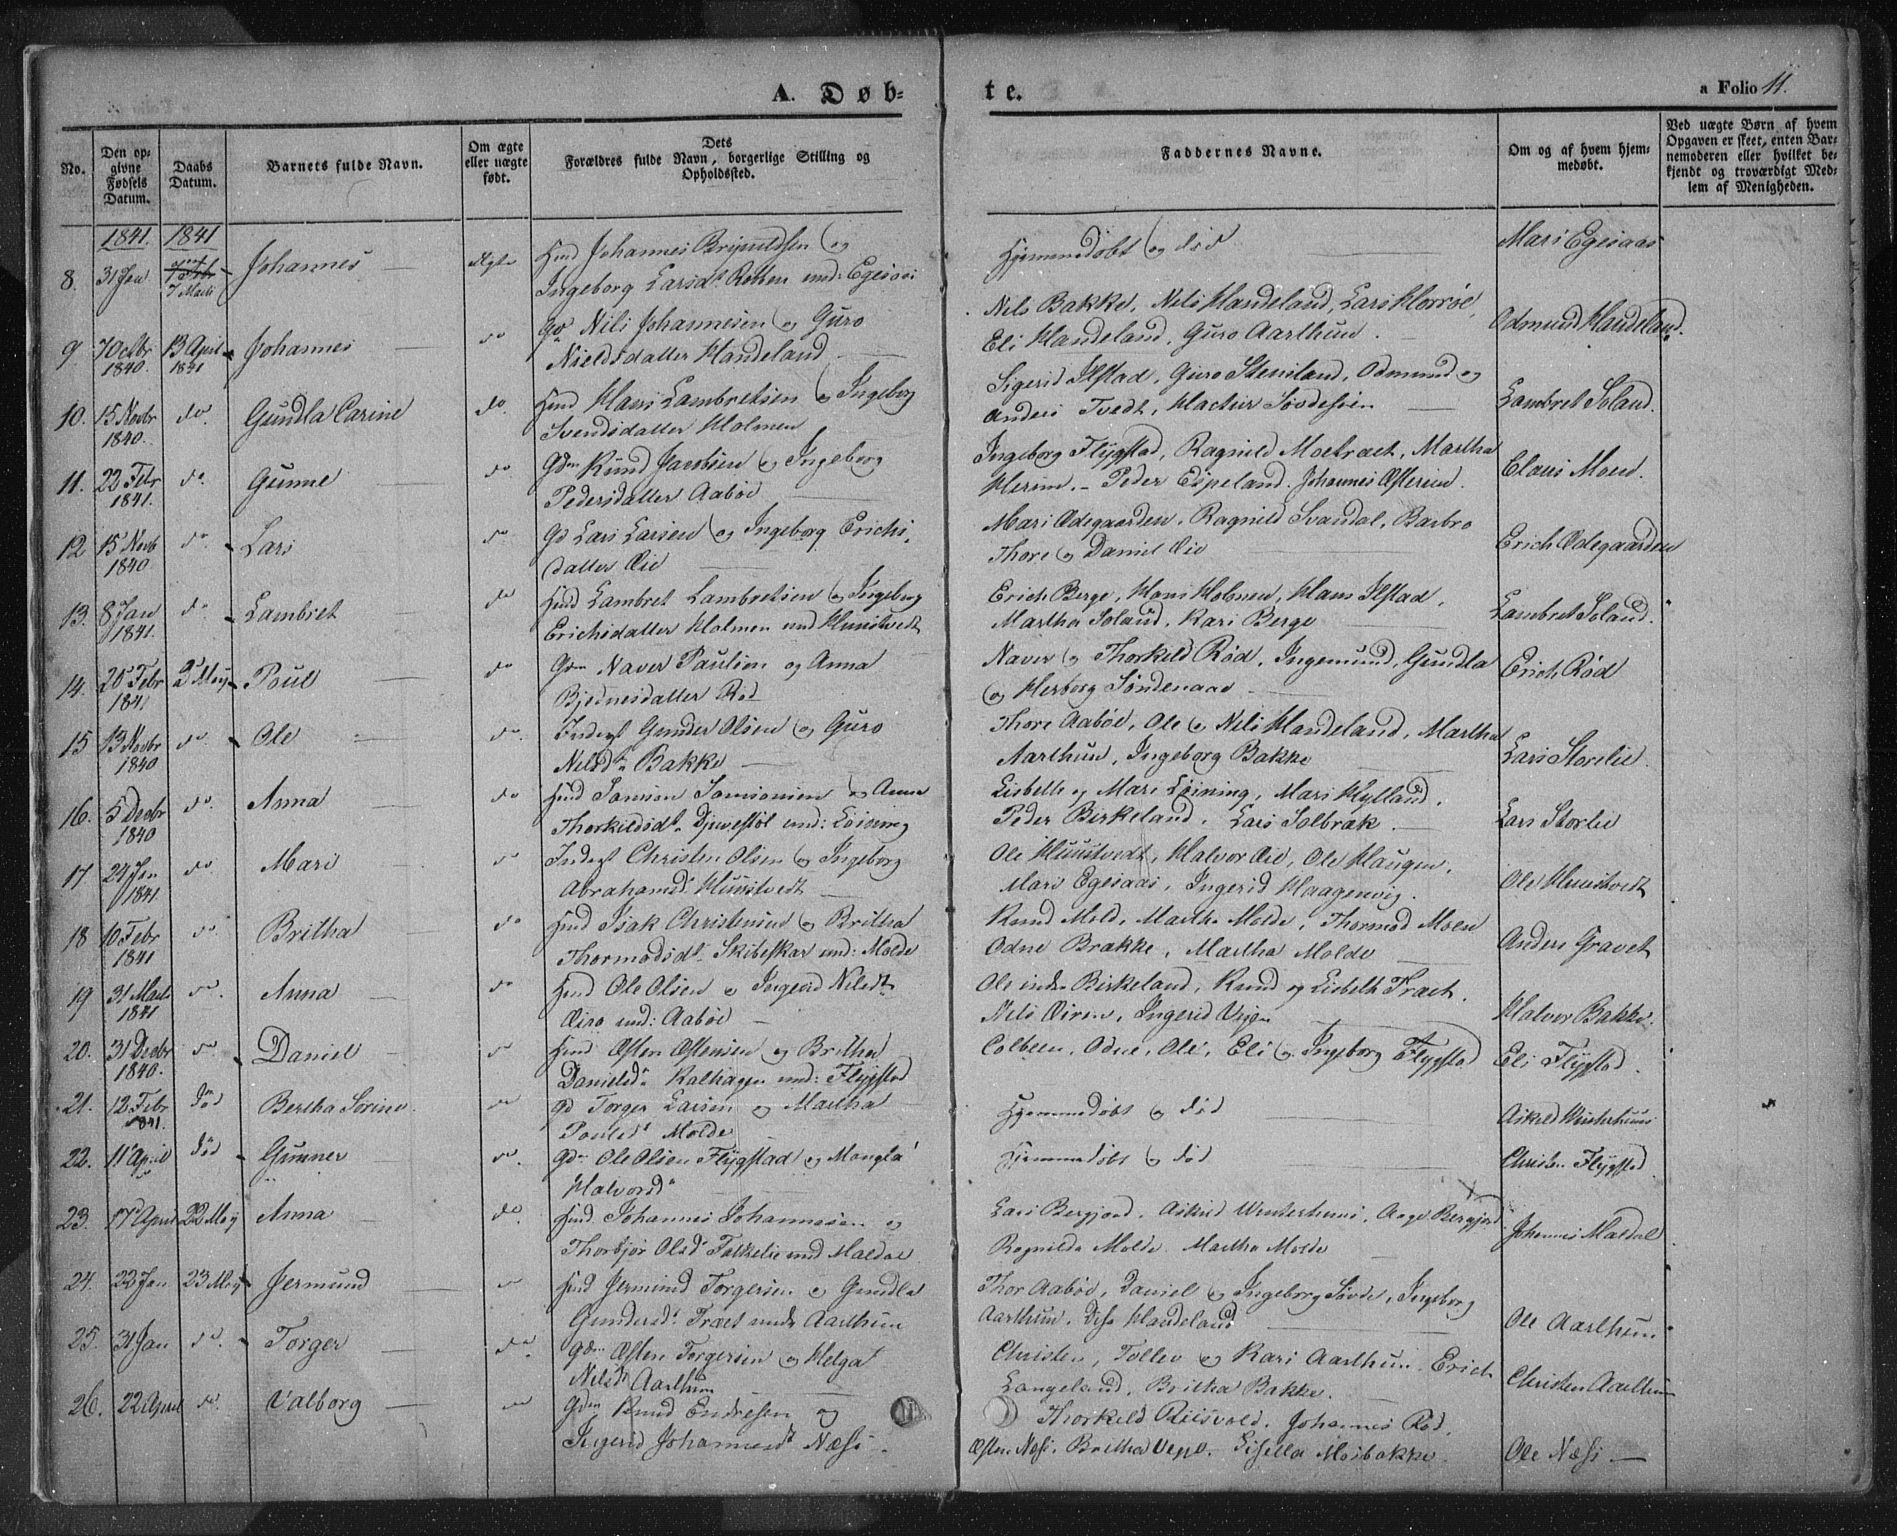 A. Døb-
te.
a Folio 11.
No.
Den op-
givne
Fødsels
Datum.
Daabs
Datum.
Barnets fulde Navn.
Om ægte
eller uægte
født.
Dets
Forældres fulde Navn, borgerlige Stilling og
Opholdssted.
Faddernes Navne.
Om og af hvem hjem-
medøbt.
Ved uægte Børn af hvem
Opgaven er skeet, enten Bar-
nemoderen eller hvilket be-
kjendt og troværdigt Med-
lem af Menigheden.
1841. 1841
8. 31 Jan 7 Marts Johannes Ægte Huusmd Johannes Brynildsen og
Ingeborg Larsdr Rabben und: Egesaas
Hjemmedøbt og død
Mari Egesaas
9 7 Octbr 13 April Johannes do Gd Nils Johannesen og Guro
1840. 1841 Nielsdatter Handeland
Nils Bakke, Nils Handeland, Lars Horrøe,
Eli Handeland, Guro Aarthun.
Odmund Handeland.
10. 15 Novbr do. Gundla Carine do. Hmd Hans Lambretsen og Ingeborg
1840. Svendsdatter Holmen
Sigerid Ilstad, Guro Stensland, Odmund og
Anders Tvedt,
Lambret Soland.
11. 22 Febr do. Gunne do Gdm Knud Jacobsen og Ingeborg
1841. Pedersdatter Aabøe
Ingeborg Flygstad, Ragnild Moetræet, Martha
Herim. Peder Espeland. Johannes Østerein.
Claus Moen.
12 15 Novb do. Lars do Gd Lars Larsen og Ingeborg Erichs-
1840 datter Øie
Mari Ødegaarden, Ragnild Svandal, Barbro
Thore og Daniel Øie
Erich Ødegaarden
13. 8 Jan do Lambret do Hmd Lambret Lambretsen og Ingeborg
1841. Erichsdatter Holmen und Huustvedt
Erich Berge, Hans Holmen, Hans Ilstad,
Martha Soland, Kari Berge
Lambret Soland.
14. 20 Febr 2 May Poul do Gdm Naver Paulsen og Anna
1841 Bjednesdatter Rød
Naver og Thorkild Rød, Ingemund, Gundla
og Herborg Søndenaae
Erich Rød
15 13 Novbr do. Ole do. Inderst Gunder Olsen og Guro
1840 Nilsdr Bakke
Thore Aabøe, Ole og Nils Handeland, Martha
Aarthun, Ingeborg Bakke
Lars Storelie.
16. 5 Decbr do. Anna do Hmd Samson Samsonsen og Anna
1840 Thorkildsdr. Djuvestøl und: Løining
Lisbeth og Mari Løining, Mari Hylland,
Peder Birkeland, Lars Solbræk.
Lars Storlie
17 24 Jan do. Mari do Inderst Christen Olsen og Ingeborg
1841. Abrahamsdr Huustvedt
Ole Huustvedt, Halvor Øie, Ole Haugen,
Mari Egesaas, Ingerid Haagenvig.
Ole Huustvedt
18 10 Febr do. Britha do Hmd Isak Christensen og Britha
1841 Thormodsdr. Skibeskar und: Molde
Knud Mold, Martha Molde, Thormod Moen
Odne Brække, Martha Molde
Anders Gravet
19 31 Marts do. Anna do Hmd Ole Olsen og Ingerid Nilsdr
1841 Øiro und: Aabøe
Ole Birkeland, Knud og Lisbeth Træet.
Nils Øiren, Ingerid
Halvor Bakke.
20. 31 Decbr do Daniel do Hmd Østen Østensen og Britha
1840. Danielsdr Kalhagen und: Flygstad
Colbeen, Odne, Ole, Eli og Ingeborg Flygstad
Eli Flygstad.
21. 12 Febr død Bertha Sorine. do Gd Torger Larsen og Martha
1841. Poulsdr Molde
Hjemmedøbt og død
Askild Winterhuus
22. 11 April død Gunner do. Gdm Ole Olsen Flygstad og Mangla
Halvorsdr
Hjemmedøbt og død
Christen Flygstad
23. 17 April 22 May Anna do. Hmd. Johannes Johannesen og
Thorbjør Olsdr Falkelie und Maldal
Lars Bergjord. Askild Winterhuus, Aage Bergjord
Ragnilda Molde. Martha Molde
Johannes Maldal
24. 22 Jan 23 May Jermund do Hmd Jermund Torgersen og Gundla
Gundersdr. Træet unde Aarthun
Thor Aabøe, Daniel og Ingeborg Søvde, Ingeborg
Aarthun. Handeland
Ole Aarthun
25. 31 Jan do. Torger do. Gdm Østen Torgersen og Helga
Nilsdr Aarthun
Christen, Tollev og Kari Aarthun. Erich
Langeland, Britha Bakke.
Christen Aarthun
26. 22 April do. Valborg do Gdm Knud Endresen og
Ingerid Johannesdr Næss.
Thorkild Riisvold. Johannes Rød.
Østen Næss. Britha Lisella Moibakke.
Ole Næss